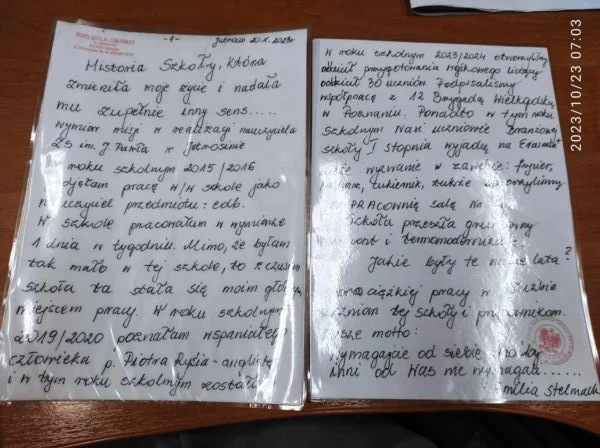 -1- Jutrosin 20.X.2023r.
Historia Szkoły, która
zmieniła moje życie i nadała
mu zupełnie inny sens.....
wymiar misji w realizacji nauczyciela
ZS im. J. Pawła w Jutrosinie
roku szkolnym 2015/2016
pracę w/w szkole jako
nauczyciel przedmiotu: edb.
W szkole pracowałam w wymiarze
1 dnia w tygodniu. Mimo, że byłam
tak mało w tej szkole, to z czasem
szkoła ta stała się moim głów
miejscem pracy. W roku szkolnym
2019/2020 poznałam wspaniałego
człowieka p. Piotra Rysia - anglistę
i w tym roku szkolnym został
W roku szkolnym 2023/2024 otworzyliśmy
oddział przygotowania wojskowego liczący
oddział 30 uczniów. Podpisaliśmy
współpracę z 12 Brygadą Wielkopolską
w Poznaniu. Ponadto w tym roku
szkolnym nasi uczniowie Branżowej
szkoły I stopnia wyjadą na Erasmus
wyzwanie w zawodzie: fryzjer,
cukiernik,
PRACOWNIĘ salę Nr
Szkoła przeszła
i termomodernizację.
Jakie były te lata?
ciężkiej pracy w
uczniom tej szkoły i pracownikom.
motto:
Wymagajcie od siebie choćby
inni od Was nie wymagali......
Emilia Stelmach
2023/10/23 07:03